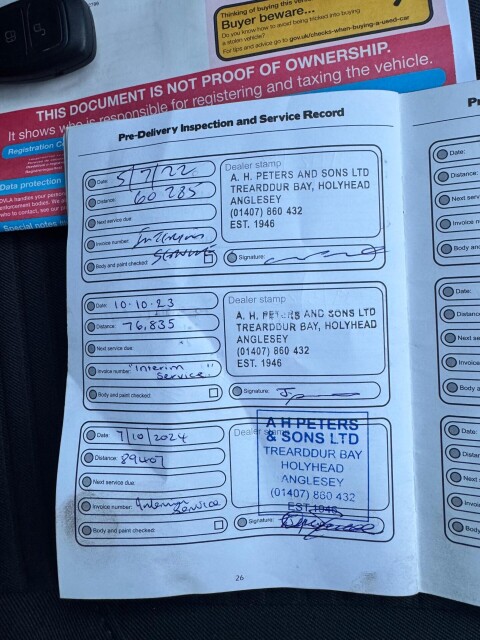 Thinking of buying this vehicle?
Buyer beware...
Do you know how to avoid being tricked into buying
a stolen vehicle?
For tips and advice go to gov.uk/checks-when-buying-a-used-car
THIS DOCUMENT IS NOT PROOF OF OWNERSHIP.
It shows who is responsible for registering and taxing the vehicle.
Registration
Data protection
Special notes
Pre-Delivery Inspection and Service Record
Date: 5/7/22
Distance: 60285
Next service due:
Invoice number: Interim
Service
Body and paint checked:
Dealer stamp
A. H. PETERS AND SONS LTD
TREARDDUR BAY, HOLYHEAD
ANGLESEY
(01407) 860 432
EST. 1946
Signature:
Date: 10.10.23
Distance: 76,835
Next service due:
Invoice number: "Interim
Service"
Body and paint checked:
Dealer stamp
A. H. PETERS AND SONS LTD
TREARDDUR BAY, HOLYHEAD
ANGLESEY
(01407) 860 432
EST. 1946
Signature:
Date: 7/10/2024
Distance: 89407
Next service due:
Invoice number: Interim
Service
Body and paint checked:
Dealer stamp
A H PETERS
& SONS LTD
TREARDDUR BAY
HOLYHEAD
ANGLESEY
(01407) 860 432
EST. 1946
Signature:
26
Date:
Distance:
Next service
Invoice
Body and
Date:
Distance
Next
Invoice
Body a
Date:
Distan
Next
Invoi
Body